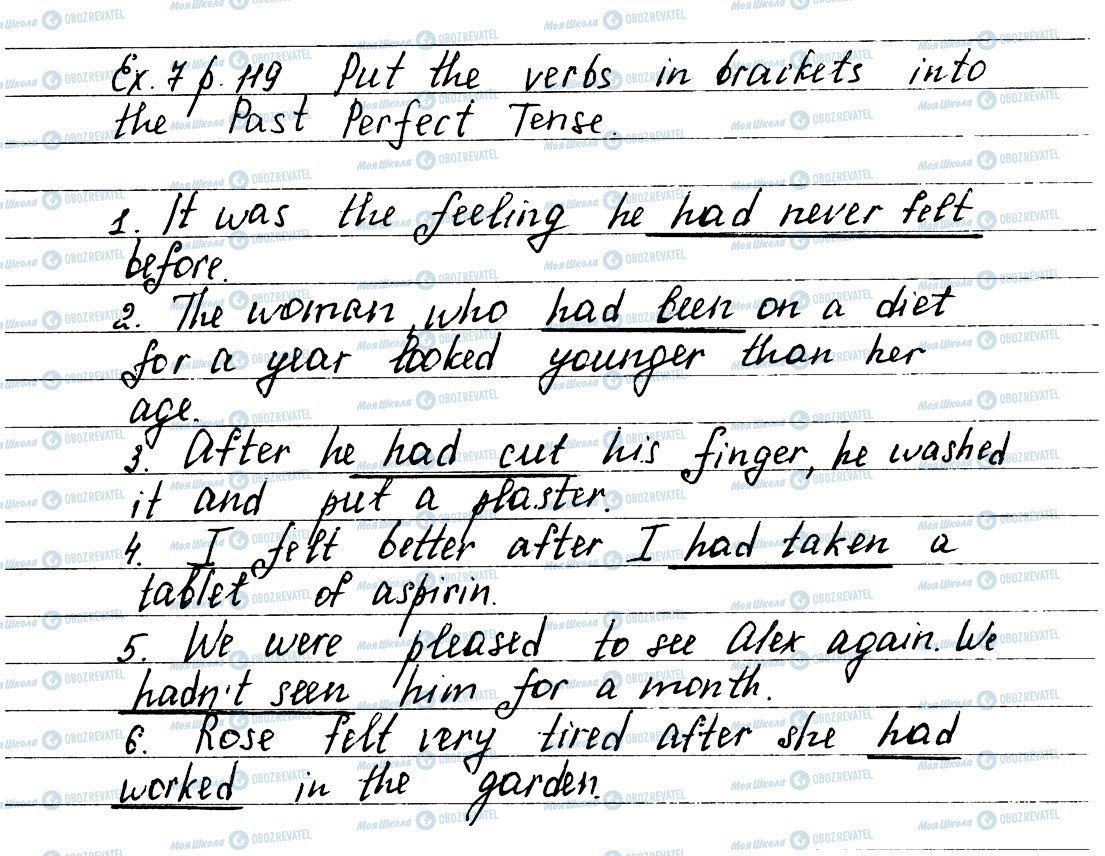 Ex. 7 p. 119 Put the verbs in brackets into
the Past Perfect Tense.
1. It was the feeling he had never felt
before.
2. The woman, who had been on a diet
for a year looked younger than her
age.
3. After he had cut his finger, he washed
it and put a plaster.
4. I felt better after I had taken a
tablet of aspirin.
5. We were pleased to see Alex again. We
hadn't seen him for a month.
6. Rose felt very tired after she had
worked in the garden.
МояШкола OBOZREVATEL